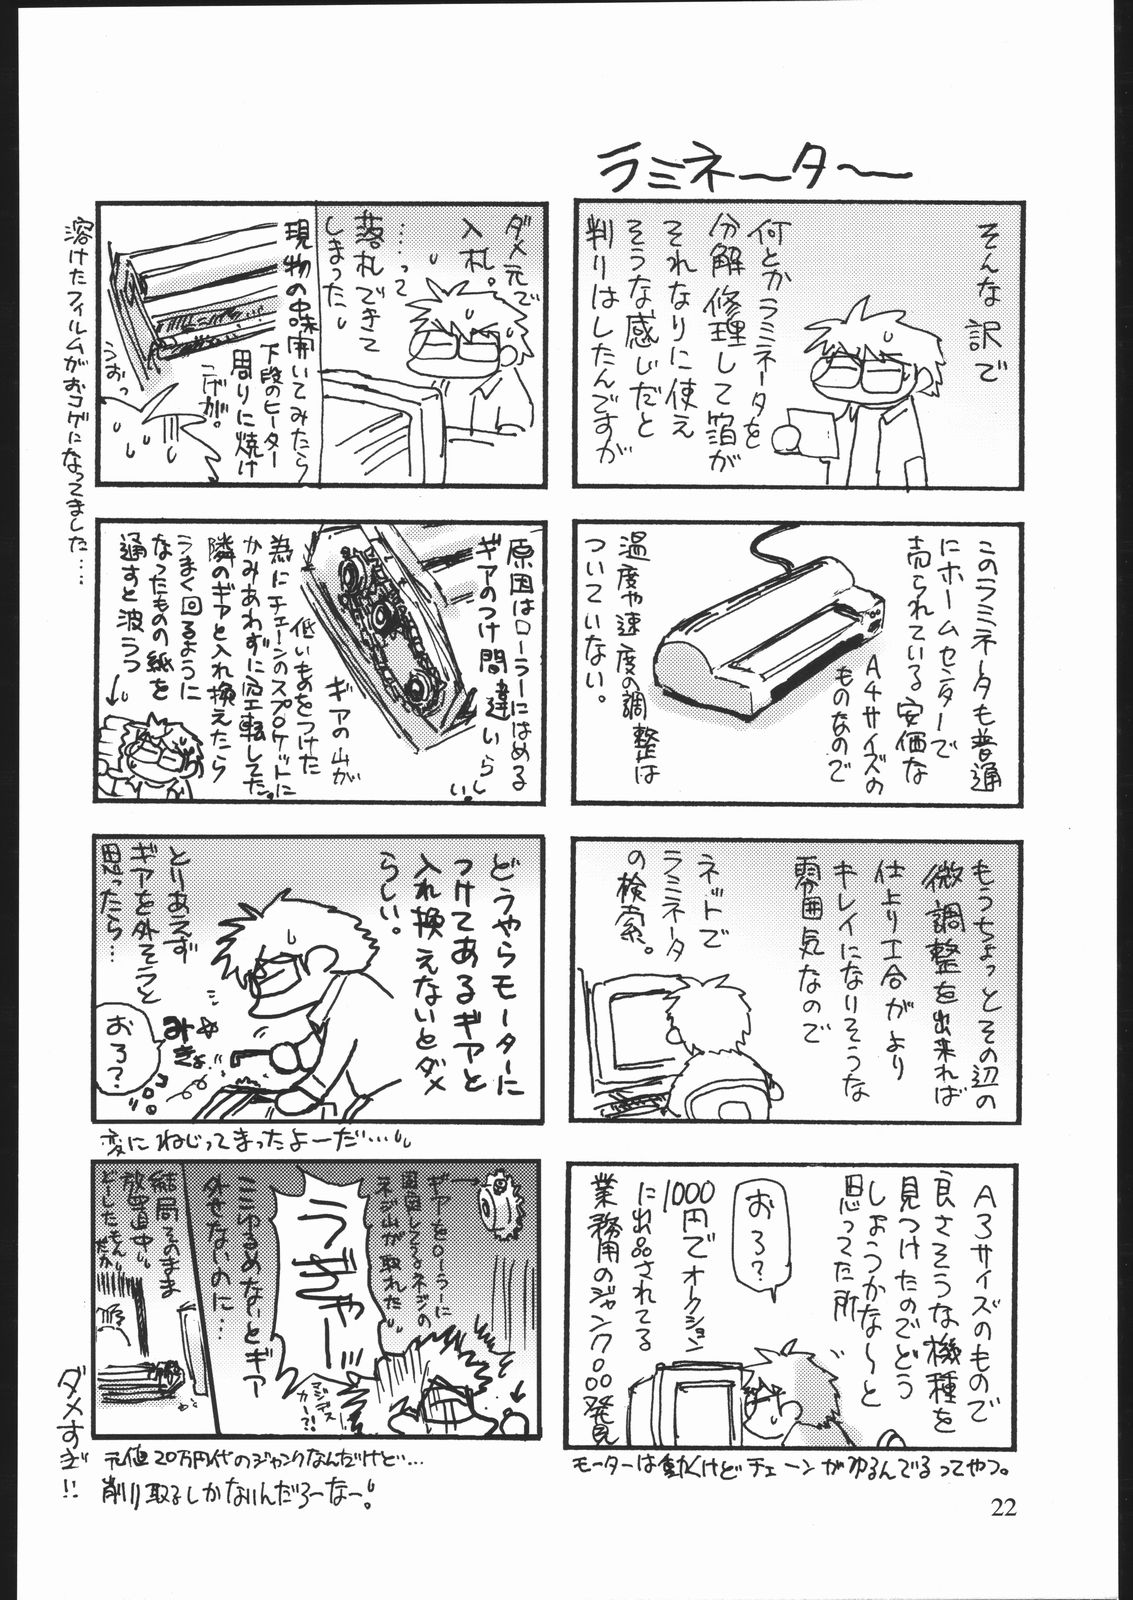 ラミネーター
そんな訳で
何とかラミネータを
分解修理して箔が
それなりに使え
そうな感じだと
判りはしたんですが
このラミネータも普通
にホームセンターで
売られている安価な
A4サイズの
ものなので
温度や速度の調整は
ついていない。
もうちょっとその辺の
微調整を出来れば
仕上り工合がより
キレイになりそうな
雰囲気なので
ネットで
ラミネータ
の検索。
A3サイズのもので
良さそうな機種を
見つけたのでどう
しょうかな〜と
思ってた所
おろ?
1000円でオークション
に出品されてる
業務用のジャンク品発見
モーターは動くけどチェーンがゆるんでるってやつ。
ダメ元で
入札。
……って
落札できて
しまった。
現物の中味開いてみたら
下段のヒーター
周りに焼け
こげが。
うおっ
溶けたフィルムがおコゲになってました……
原因はローラーにはめる
ギアのつけ間違いらしい。
ギアの山が
低いものをつけた
為にチェーンのスプロケットに
かみあわずに空転してた。
隣のギアと入れ換えたら
うまく回るように
なったものの紙を
通すと波うつ
どうやらモーターに
つけてあるギアと
入れ換えないとダメ
らしい。
とりあえず
ギアを外そうと
思ったら…
みきょ
おろ?
変にねじってまったよーだ…
ギアをローラーに
固定してるネジの
ネジ山が取れた
うぎゃー
マジデスカー?!
ここゆるめないとギア
外せないのに…
結局そのまま
放置中。
どーしたもんだか
元値20万円代のジャンクなんだけど…
削り取るしかないんだろーなー。
ダメすぎ!!
22